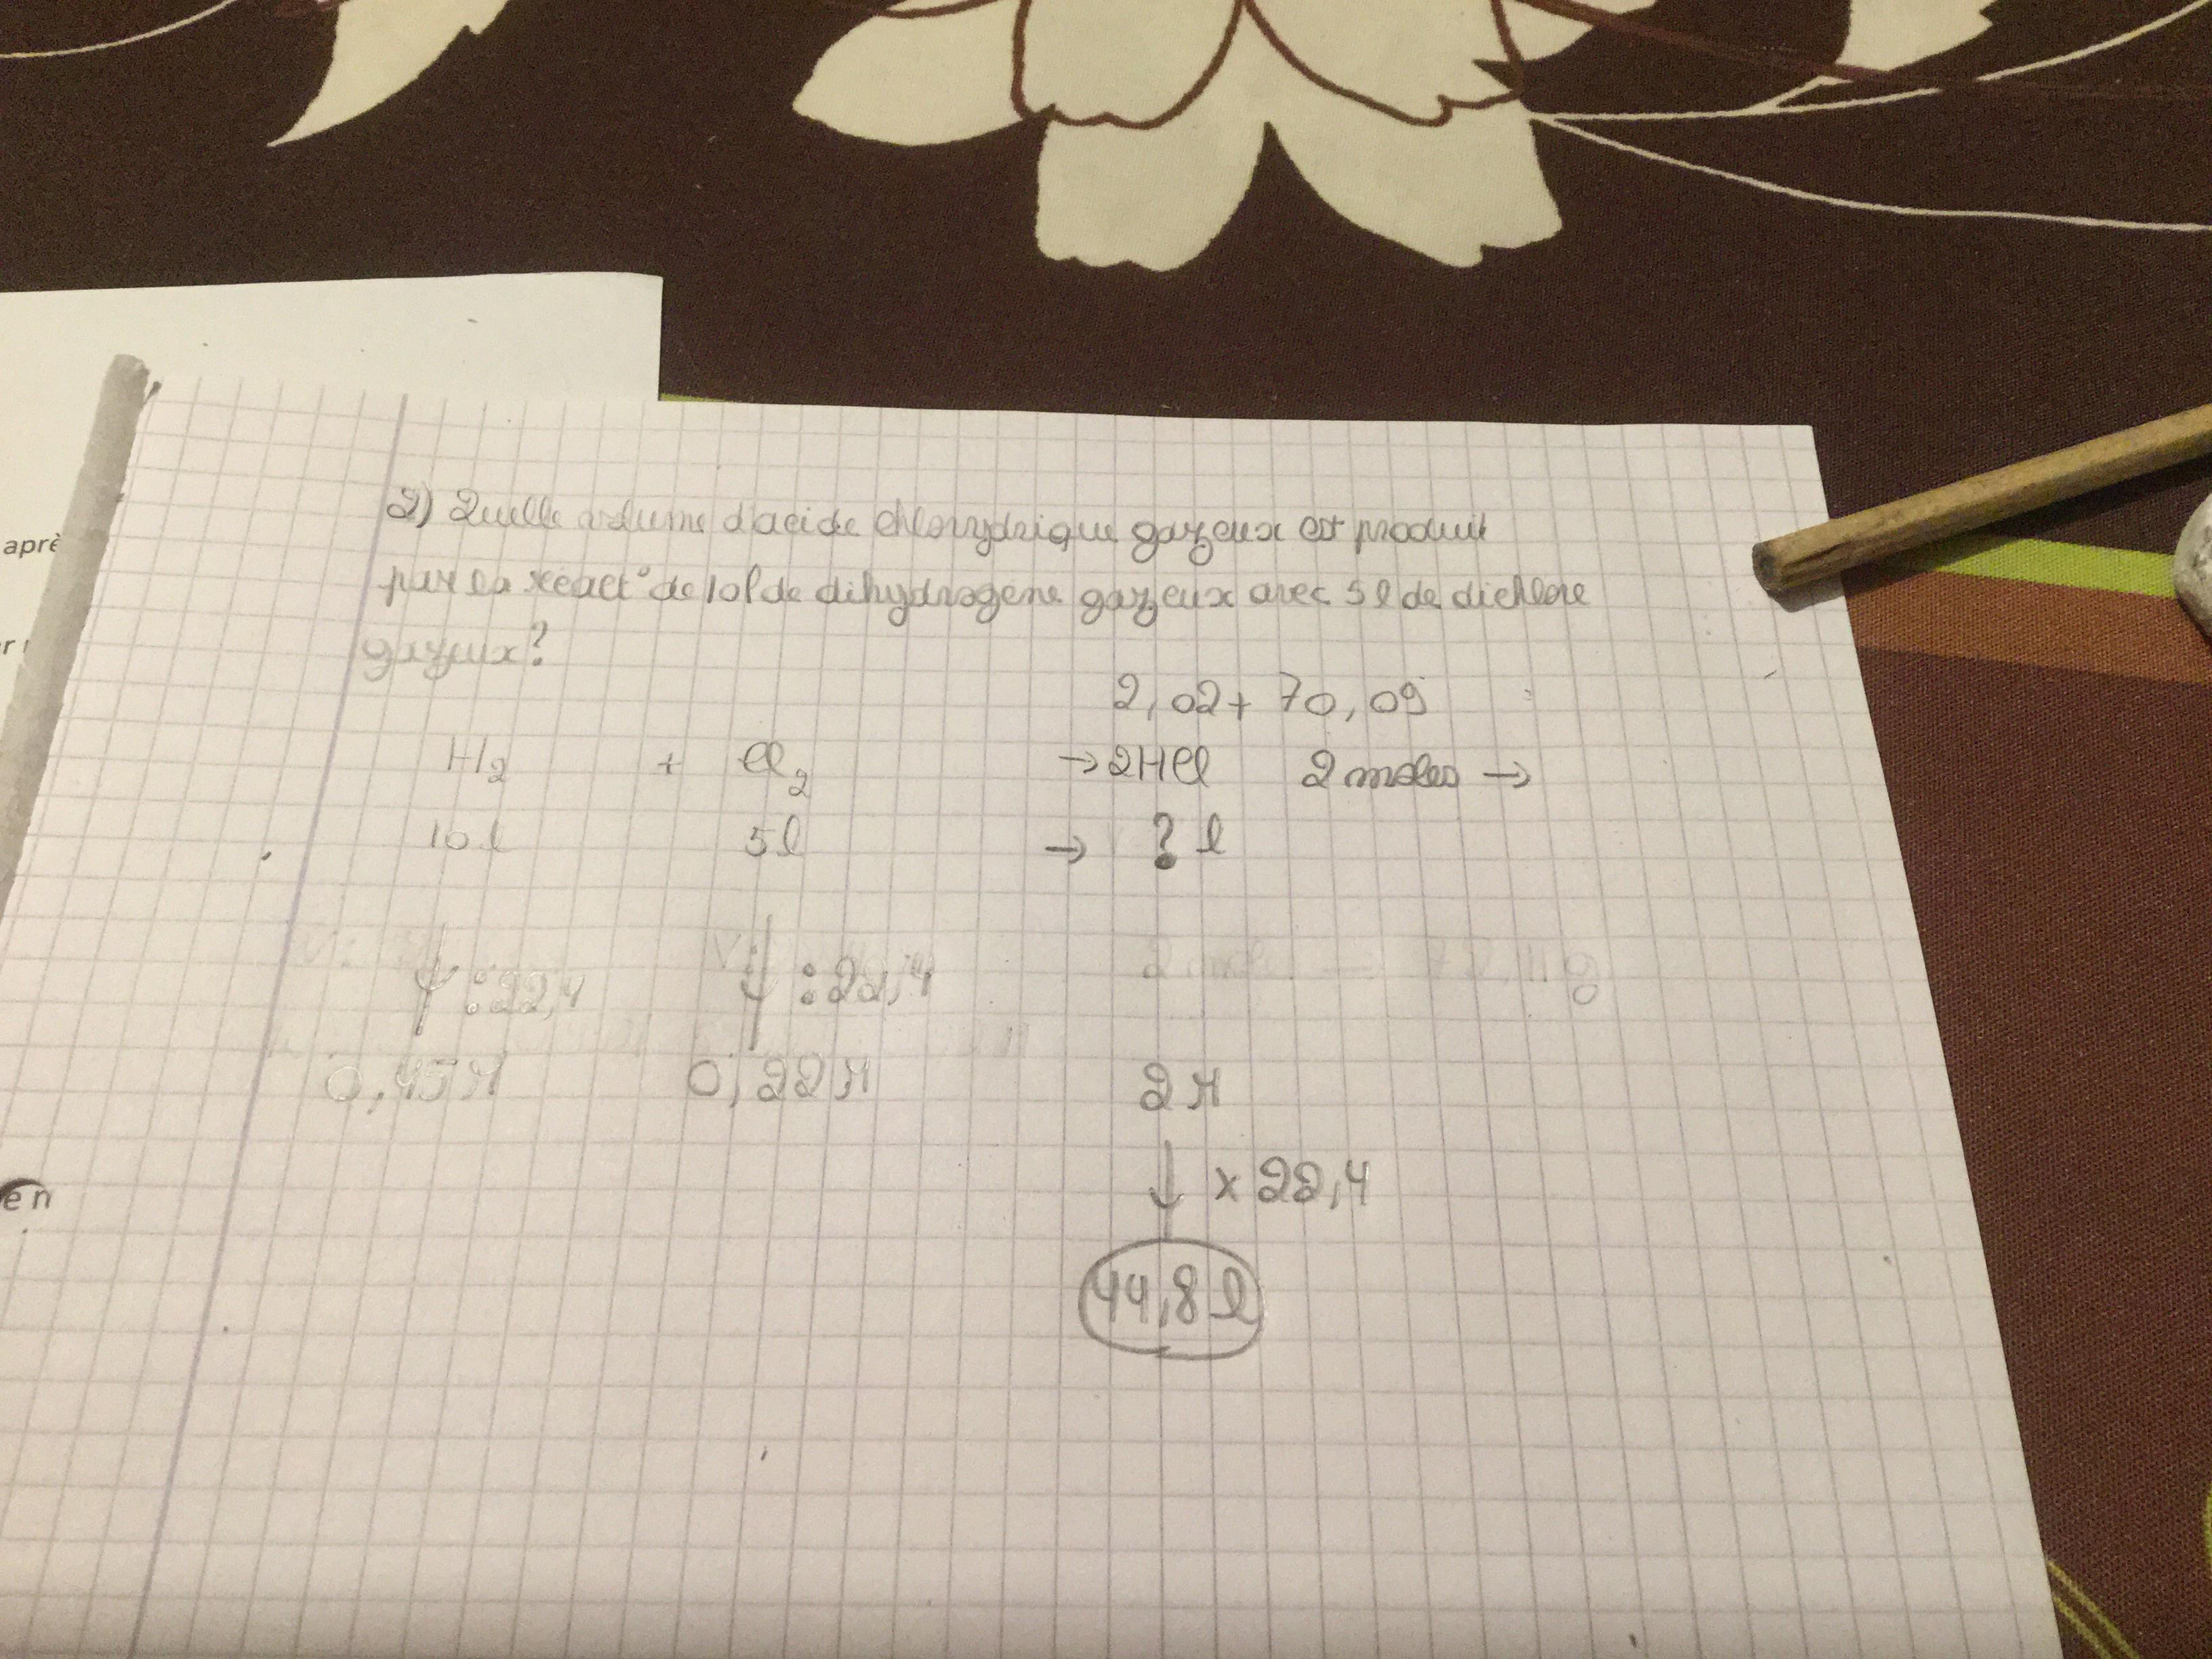 aprè
2) Quelle volume d'acide chlorydrique gazeux est produit
par la réact° de 10l de dihydrogène gazeux avec 5l de dichlore
gazeux?
2,02+ 70,09
H2 + Cl2 → 2HCl 2 moles →
10l 5l → ? l
:22,4 :22,4 2 moles → 72,11g
0,45M 0,22M 2M
x 22,4
44,8 l
en